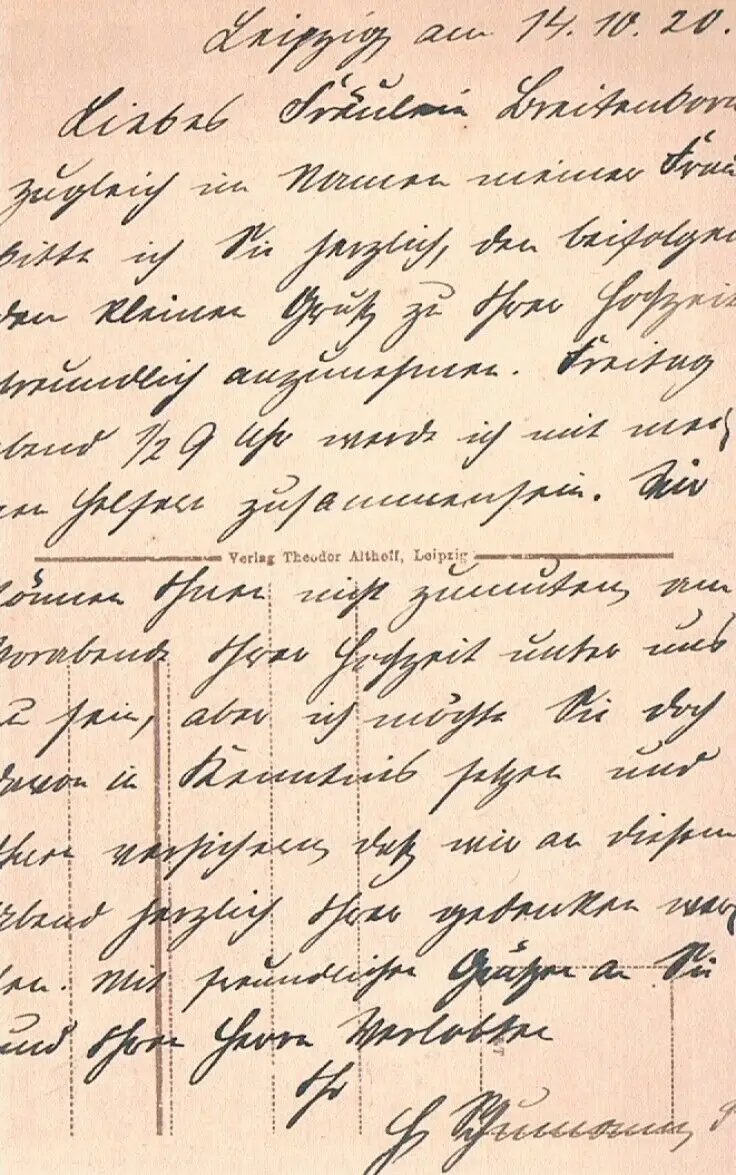 Leipzig am 14.10.20.
Liebes Fräulein Breitenborn
zugleich im Namen meiner Frau
bitte ich Sie herzlich, den beifolgen
den kleinen Gruß zu Ihrer Hochzeit
freundlich anzunehmen. Freitag
abend 1/2 9 Uhr werde ich mit mei-
nen Helfern zusammensein. Wir
Verlag Theodor Althoff, Leipzig
können Ihnen nicht zumuten, am
Vorabend Ihrer Hochzeit unter uns
zu sein, aber ich möchte Sie doch
davon in Kenntnis setzen und
Ihnen versichern, daß wir an diesem
Abend herzlich Ihrer gedenken wer-
den. Mit freundlichen Grüßen an Sie
und Ihren Herrn Verlobten
Ihr
H Schumann